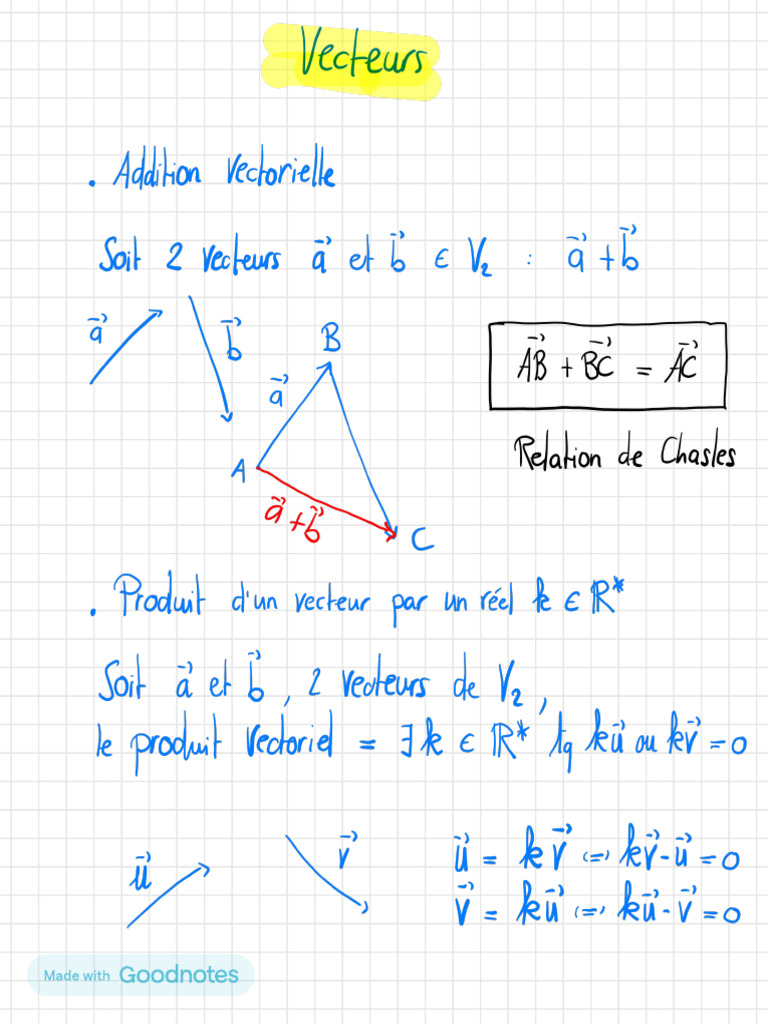 Vecteurs
. Addition vectorielle
Soit 2 vecteurs a⃗ et b⃗ ∈ V₂ : a⃗ + b⃗
a⃗
b⃗
B
a⃗
A
a⃗ + b⃗
C
AB⃗ + BC⃗ = AC⃗
Relation de Chasles
. Produit d'un vecteur par un réel k ∈ ℝ*
Soit a⃗ et b⃗, 2 vecteurs de V₂,
le produit vectoriel = ∃ k ∈ ℝ* tq ku⃗ ou kv⃗ = 0
u⃗
v⃗
u⃗ = kv⃗ (=) kv⃗ - u⃗ = 0
v⃗ = ku⃗ (=) ku⃗ - v⃗ = 0
Made with Goodnotes